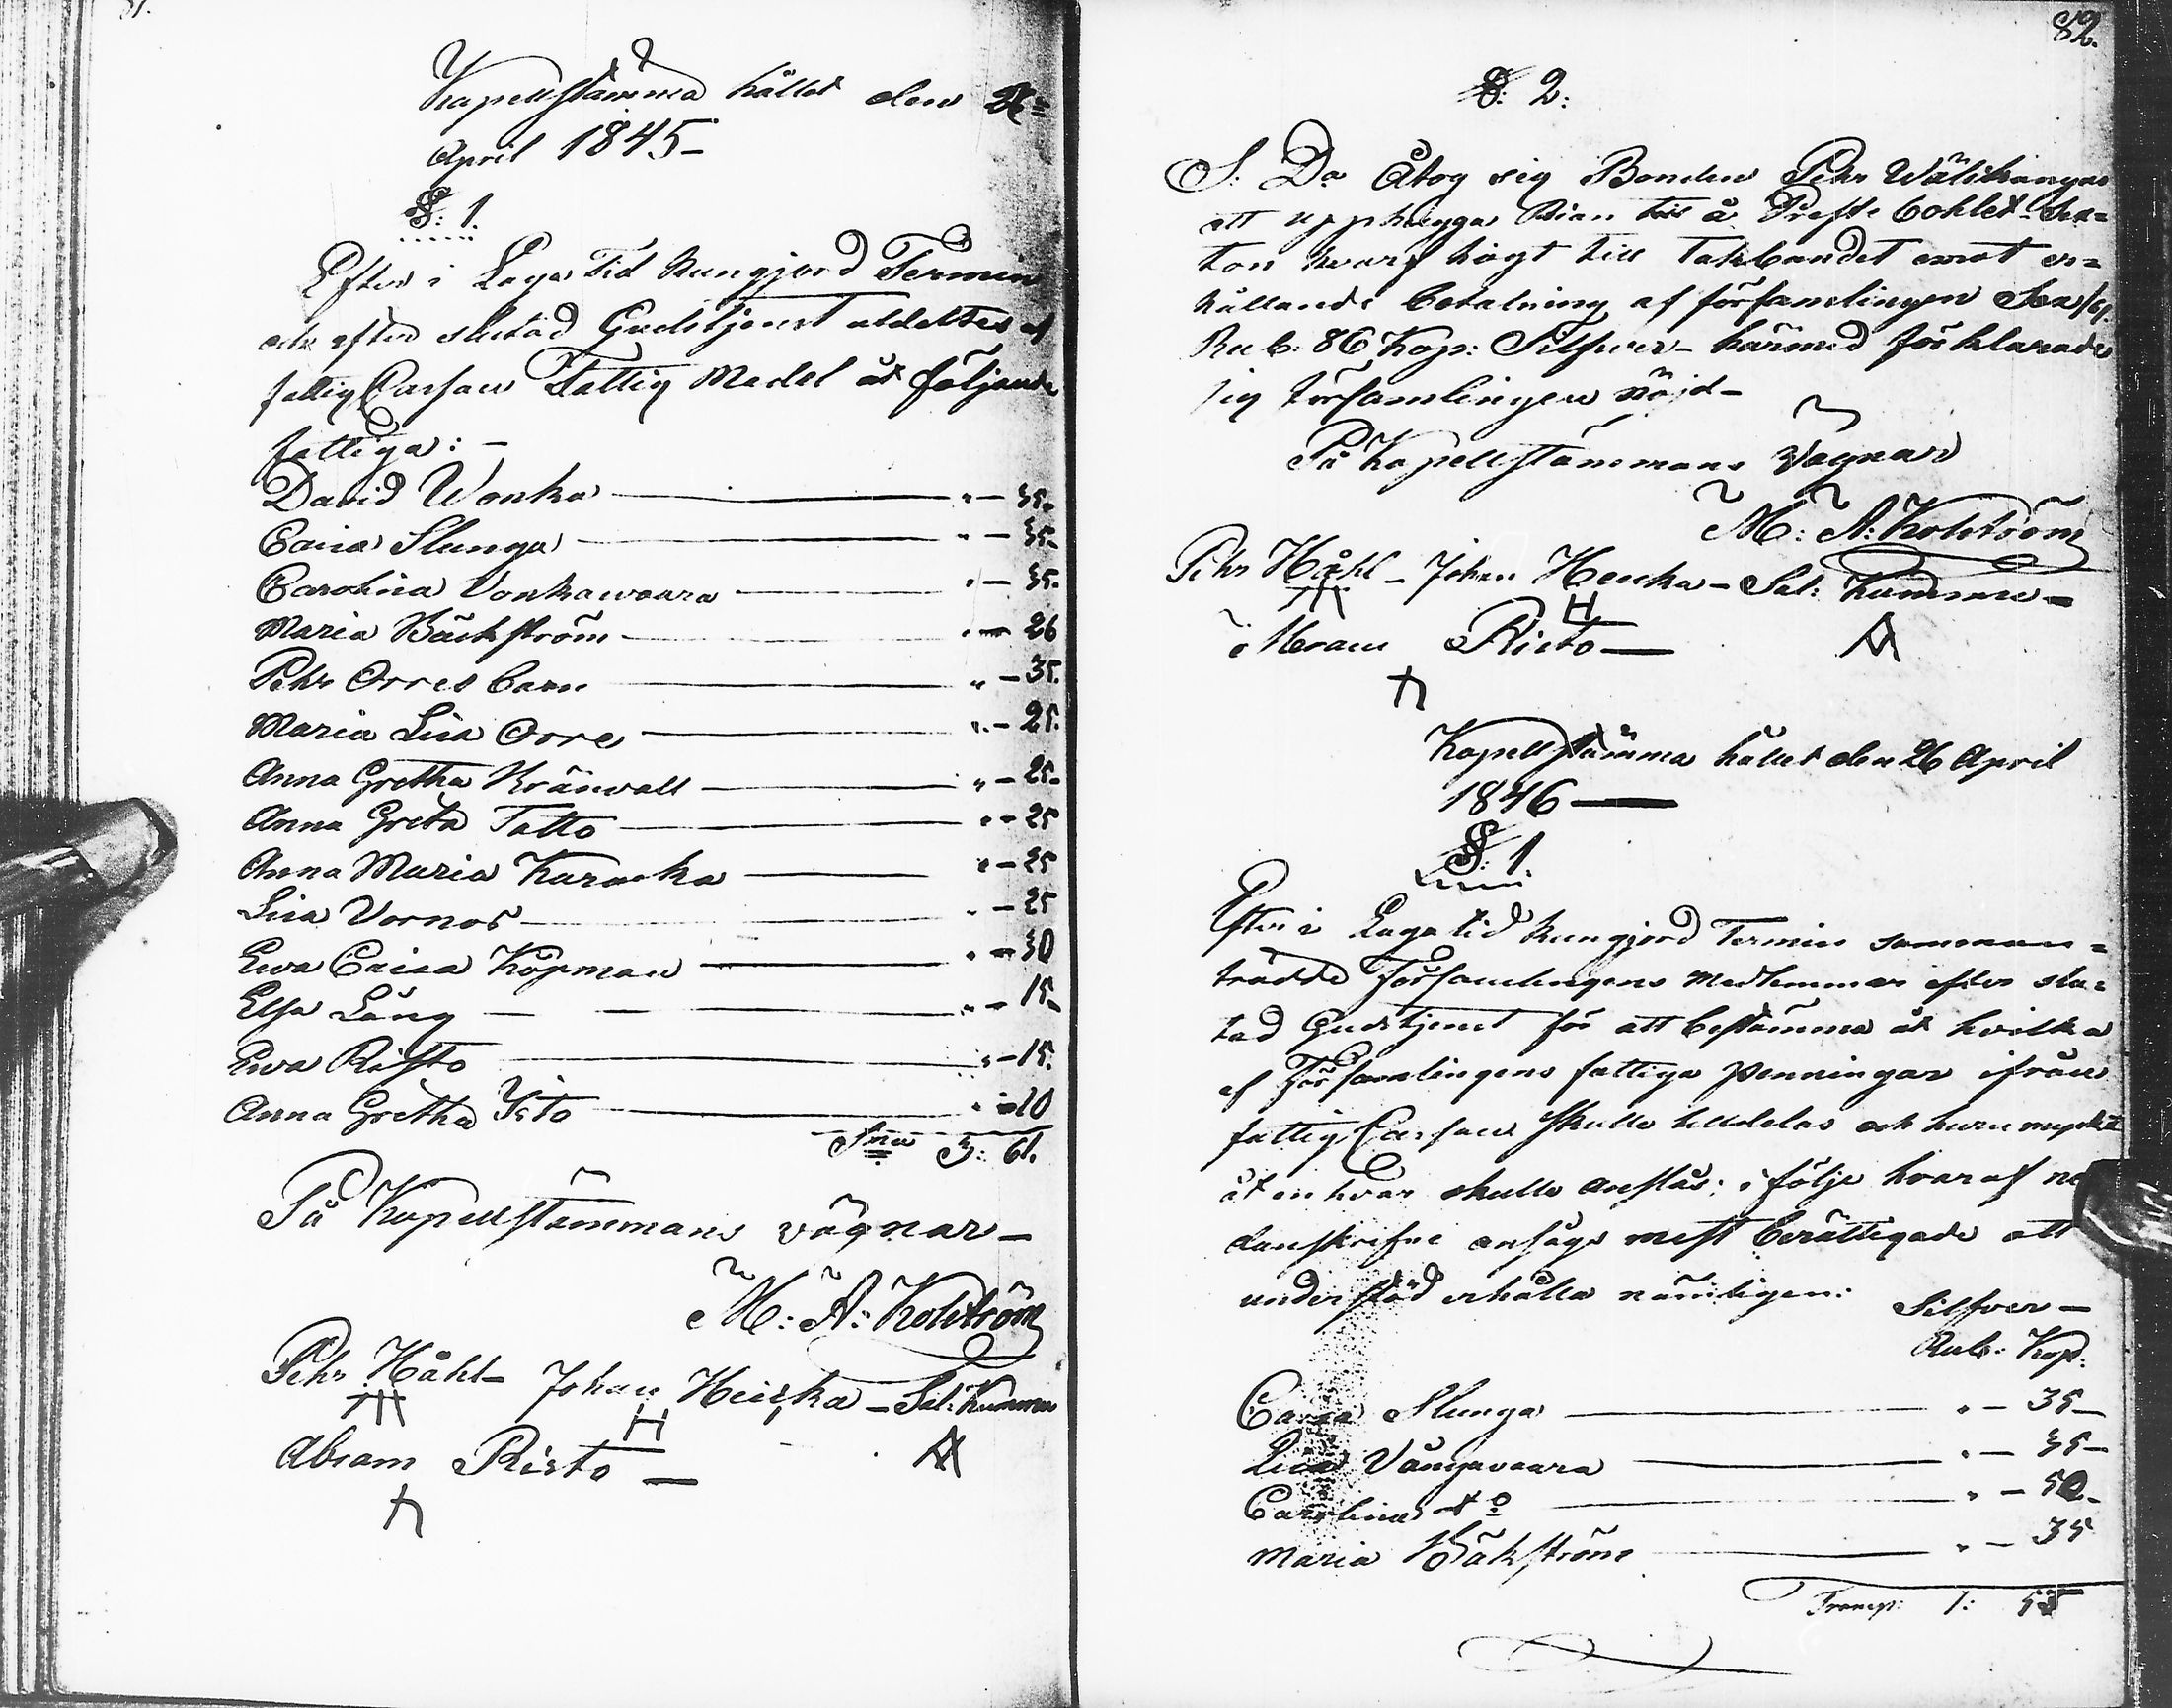 81.
Kapellstämma hållet den
April 1845–
§: 1.
Efter i Laga Tid Kungjord Termin
och efter slutad Gudstjenst utdeltes af
fattig Cassan Fattig Medel åt följande
fattiga: –
David Wonka " – 35.
Caisa Slunga " – 35.
Carolina Vonkawaara " – 35.
Maria Bäckström " – 26
Pehr Orres barn " – 35.
Maria Lisa Orre " – 25.
Anna Gretha Kränvall " – 25.
Anna Greta Tatto " – 25
Anna Maria Kuracka " – 25
Lisa Vornos " – 25
Ewa Caisa Köpman " – 30
Elsa Lång " – 15.
Ewa Risto " – 15.
Anna Gretha Isto " – 10
Sma 3: 61.
På Kapellstämmans vägnar –
M: A: Kolström
Pehr Håhl – Johan Heicka – Sal: Kumme
Abram Risto –
82.
§: 2:
S: D. Åtog sig Bonden Pehr Wälikangas
att upphugga Rian till å Preste bohlet Sex=
ton hvarf högt till Takbandet emot er=
hållande betalning af församlingen Sex /6/.
Rub: 86 Kop: Silfver – härmed förklarade
sig församlingen nöjd –
På Kapellstämmans vägnar
M: A: Kolström
Pehr Håhl – Johan Heicka – Sal: Kumme –
Abram Risto –
Kapellstämma hållet den 26 April
1846 –
§: 1
Efter i Laga tid kungjord Termin samman=
trädde Församlingens Medlemmar efter slu=
tad Gudstjenst för att bestämma åt hvilka
af Församlingens fattiga penningar ifrån
fattig Cassan skulle utdelas och huru mycket
åt en hvar skulle anslås; i följe hvaraf ne
danskrifne ansågs mest berättigade att
understöd erhålla nämligen: Silfver –
Rub: Kop:
Caisa Slunga " – 35 –
Lisa Vångavaara " – 35 –
Carolina do " – 50 –
Maria Bäkström " – 35
Transp: 1: 55